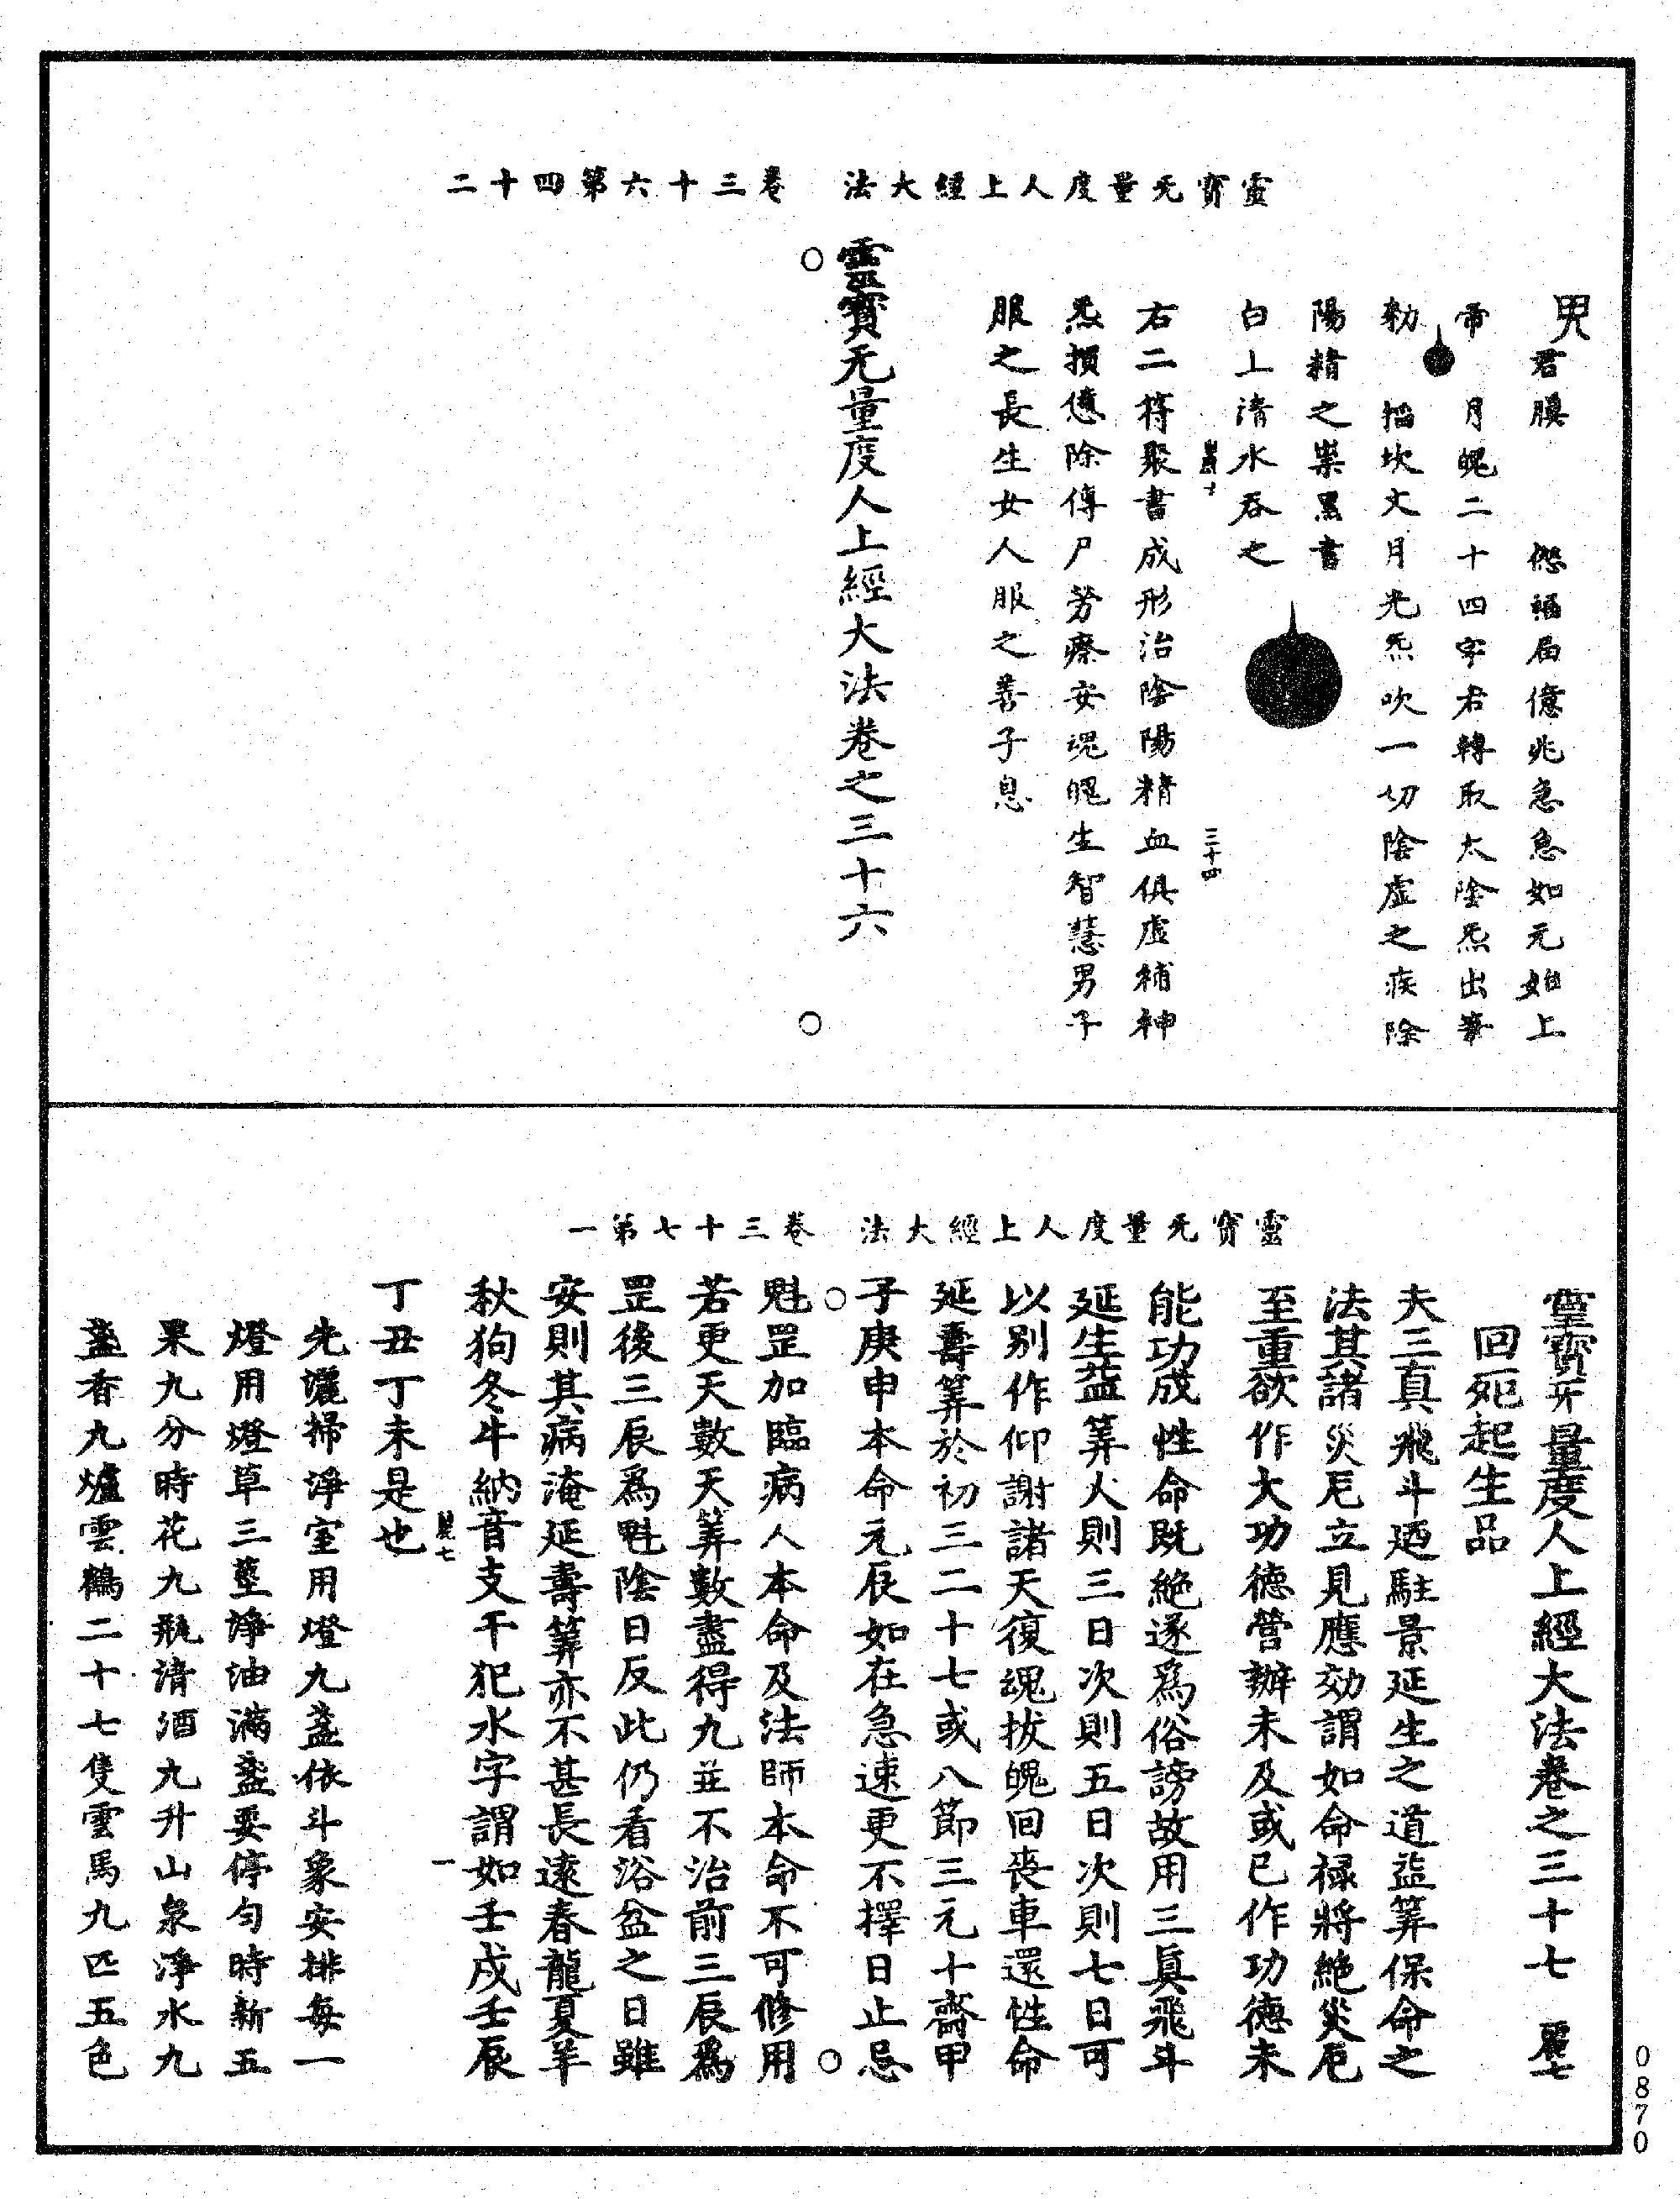 靈寶无量度人上經大法　卷三十六第四十二
君臏　　𠍴福局億兆急急如元始上
帝　月魄二十四字君轉取太陰炁出筆
勑　掐坎文月光炁吹一切陰虛之疾除
陽精之祟黑書
白上清水吞之
右二符聚書成形治陰陽精血俱虛補神
炁損憊除傳尸勞瘵安魂魄生智慧男子
服之長生女人服之善子息
三十四
靈寶无量度人上經大法卷之三十六
靈寶无量度人上經大法　卷三十七第一
靈寶无量度人上經大法卷之三十七　麗七
回死起生品
夫三真飛斗廼駐景延生之道益筭保命之
法其諸災厄立見應効謂如命祿將絕災厄
至重欲作大功德營辦未及或已作功德未
能功成性命既絕遂爲俗謗故用三真飛斗
延生益筭火則三日次則五日次則七日可
以別作仰謝諸天復魂拔魄回喪車還性命
延壽筭於初三二十七或八節三元十齋甲
子庚申本命元辰如在急速更不擇日止忌
魁罡加臨病人本命及法師本命不可修用
若更天數天筭數盡得九並不治前三辰爲
罡後三辰爲魁陰日反此仍看浴盆之日雖
安則其病淹延壽筭亦不甚長遠春龍夏羊
秋狗冬牛納音支干犯水字謂如壬戌壬辰
丁丑丁未是也
麗七　一
先灑掃淨室用燈九盞依斗象安排每一
燈用燈草三莖淨油滿盞要停勻時新五
果九分時花九瓶清酒九升山泉淨水九
盞香九爐雲鶴二十七隻雲馬九匹五色
0870